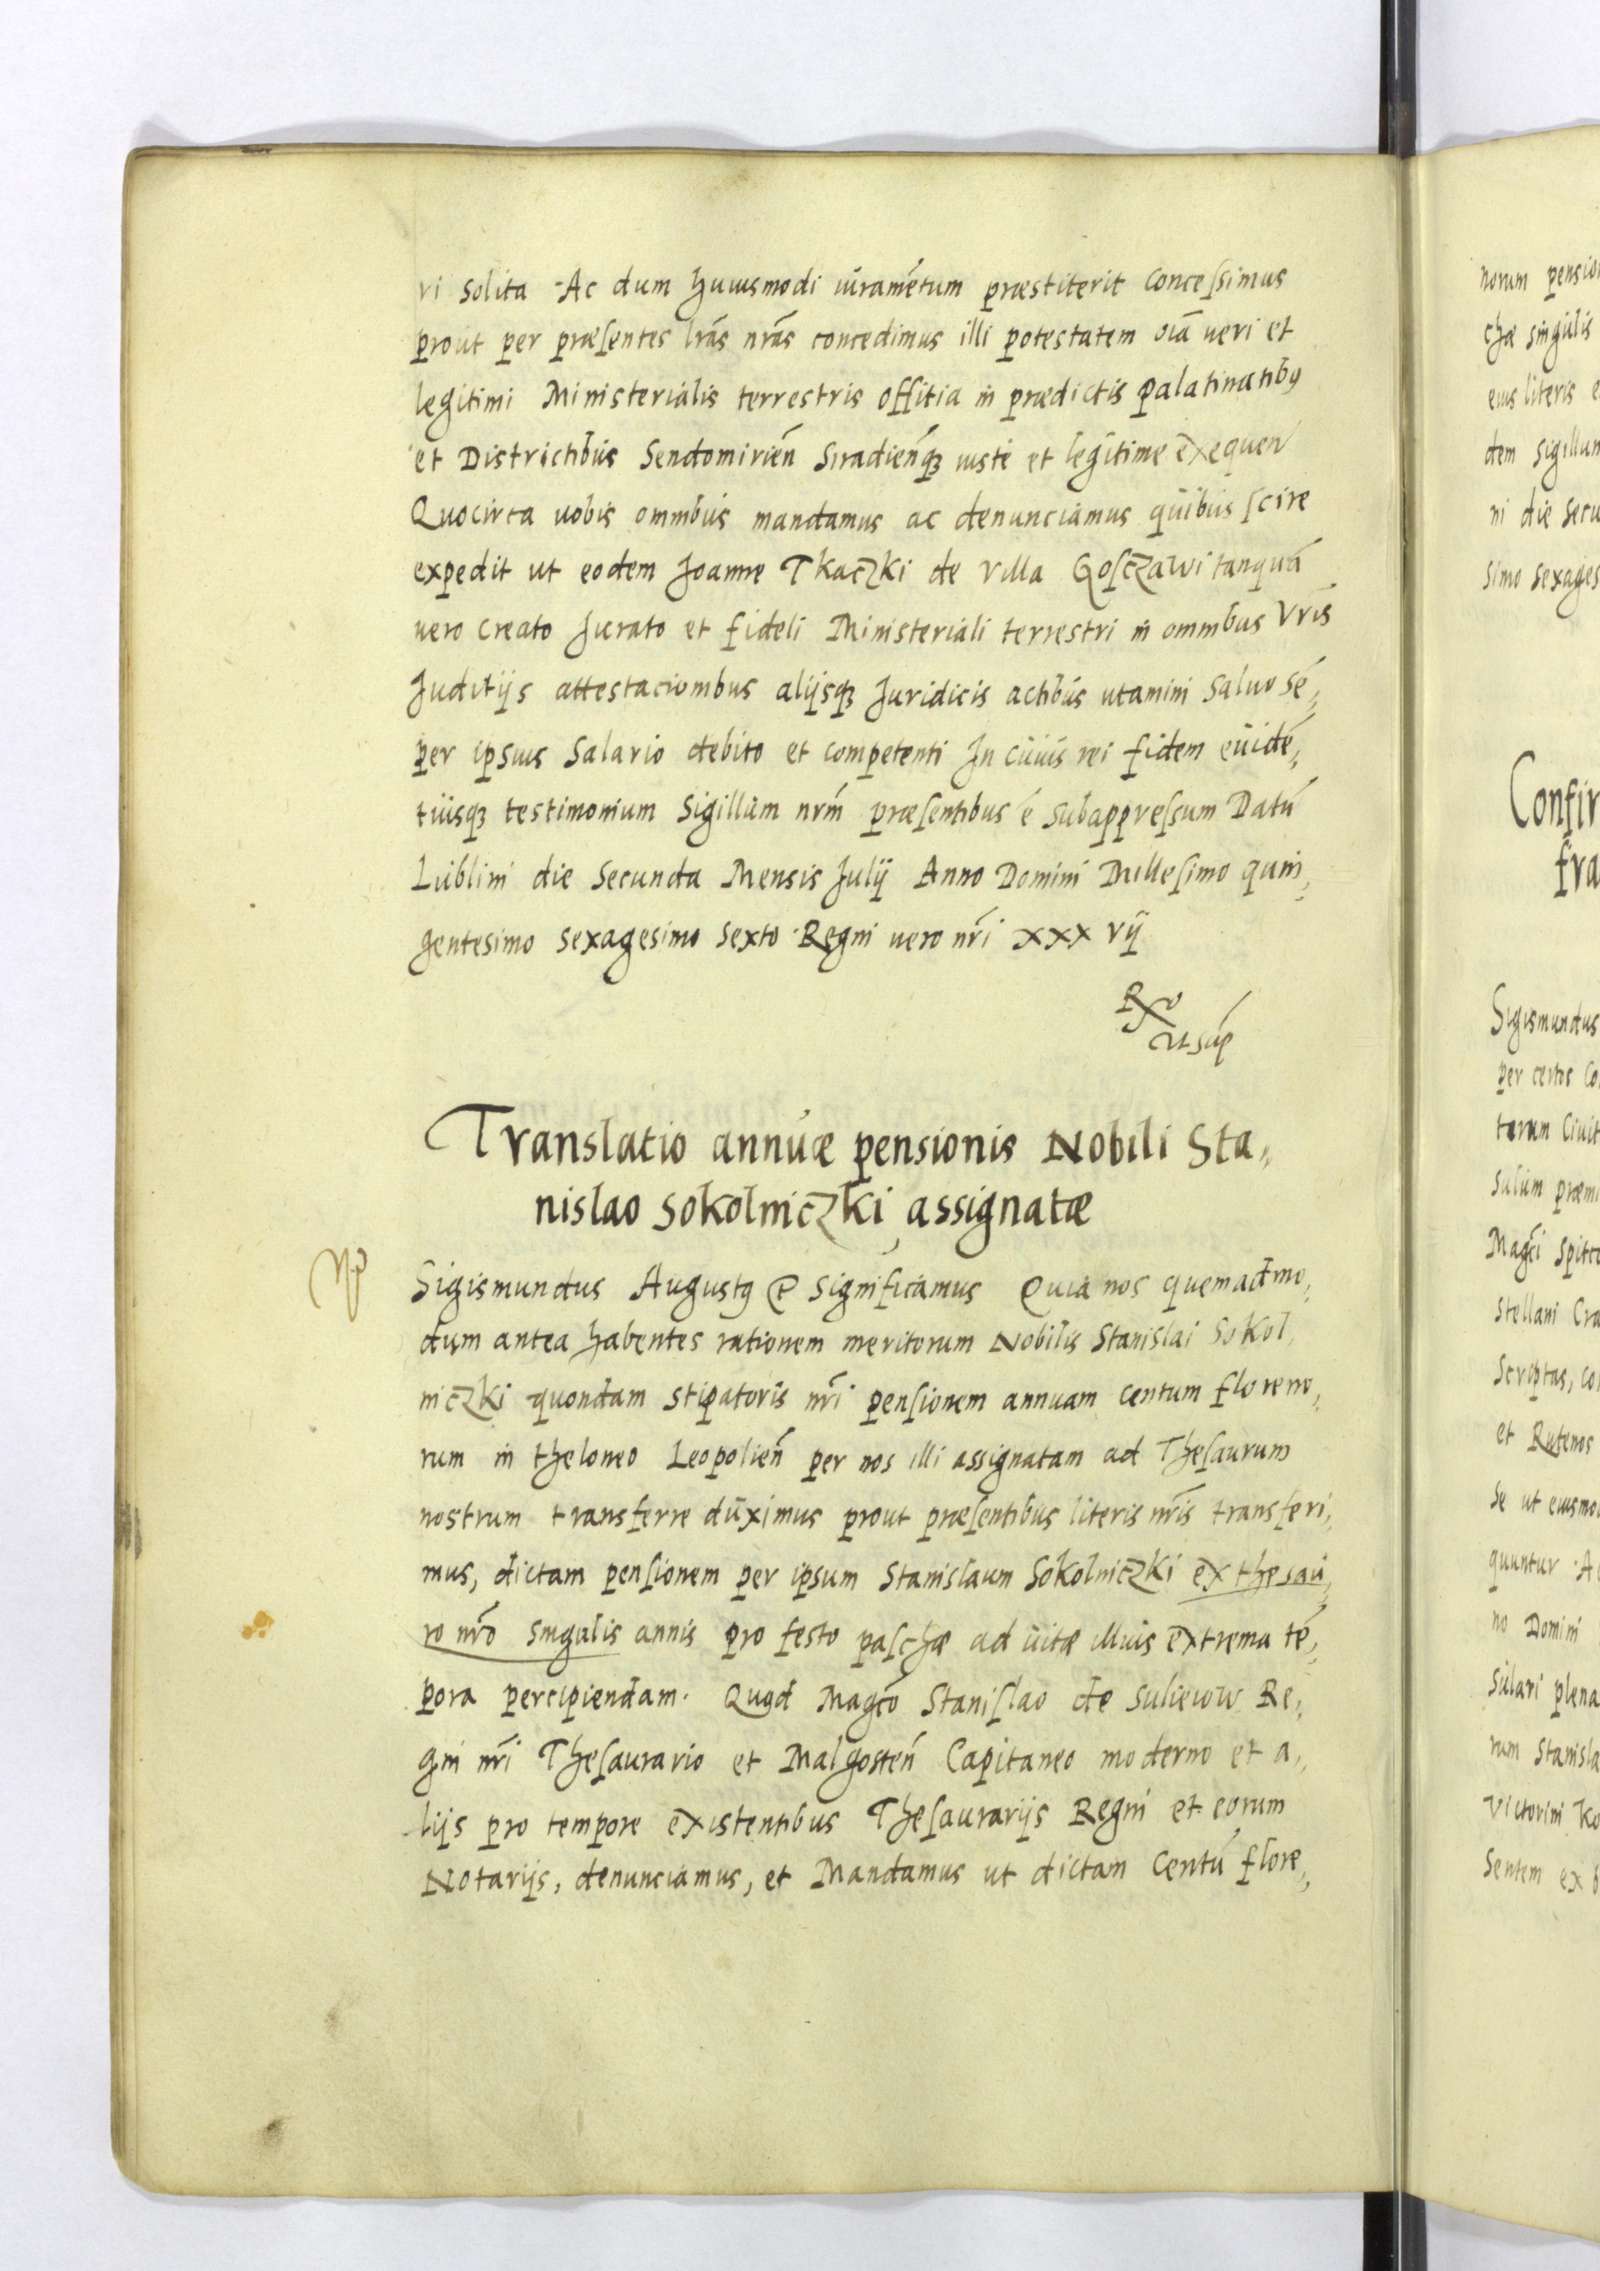 ri solita Ac dum huiusmodi iuramētum præstiterit concessimus
prout per præsentes lrās nrās concedimus illi potestatem oīa ueri et
legitimi Ministerialis terrestris offitia in prædictis palatinatibq
et Districtibus Sendomirieñ Siradieñq iuste et legitime exequen
Quocirca uobis omnibus mandamus ac denunciamus quibus scire
expedit ut eodem Joanne Tkaczki de villa Gosczawi tanquā
uero creato Jurato et fideli Ministeriali terrestri in omnibus Vrīs
Juditijs attestacionibus alijsq Juridicis actibus utamini saluo sē,
per ipsius salario debito et competenti In cuius rei fidem euidē,
tiusq testimonium Sigillum nrm̄ præsentibus ē subappressum Datū
Lublini die Secunda Mensis Julij Anno Domini Millesimo quin,
gentesimo sexagesimo sexto Regni uero nrī xxx vij
Rxo
ut sup
Translatio annuæ pensionis Nobili Sta,,
nislao Sokolniczki assignatæ
Sigismundus Augustq Significamus Quia nos quemadmo,
dum antea habentes rationem meritorum Nobilis Stanislai Sokol,
niczki quondam stipatoris nrī pensionem annuam centum floreno,
rum in theloneo Leopolieñ per nos illi assignatam ad Thesaurum
nostrum transferre duximus prout præsentibus literis nrīs transferi,
mus, dictam pensionem per ipsum Stanislaum Sokolniczki ex thesau,
ro nrō singulis annis pro festo paschæ ad uitæ illius extrema tē,
pora percipiendam. Quod Magcō Stanislao de Sulieiow Re,
gni nrī Thesaurario et Malgosteñ Capitaneo moderno et a,
lijs pro tempore existentibus Thesaurarijs Regni et eorum
Notarijs, denunciamus, et Mandamus ut dictam Centū flore,
norum pensio
chæ singulis
eius literis e
dem sigillum
ni die secu
simo sexages
Confir
fra
Sigismundus
per certos Co
torum Ciuit
Stellani Cra
Scriptas, co
et Rutenos
se ut eiusmo
quuntur Ac
no Domini
Sulari plena
rum Stanisla
Victorini Ko
Sentem ex